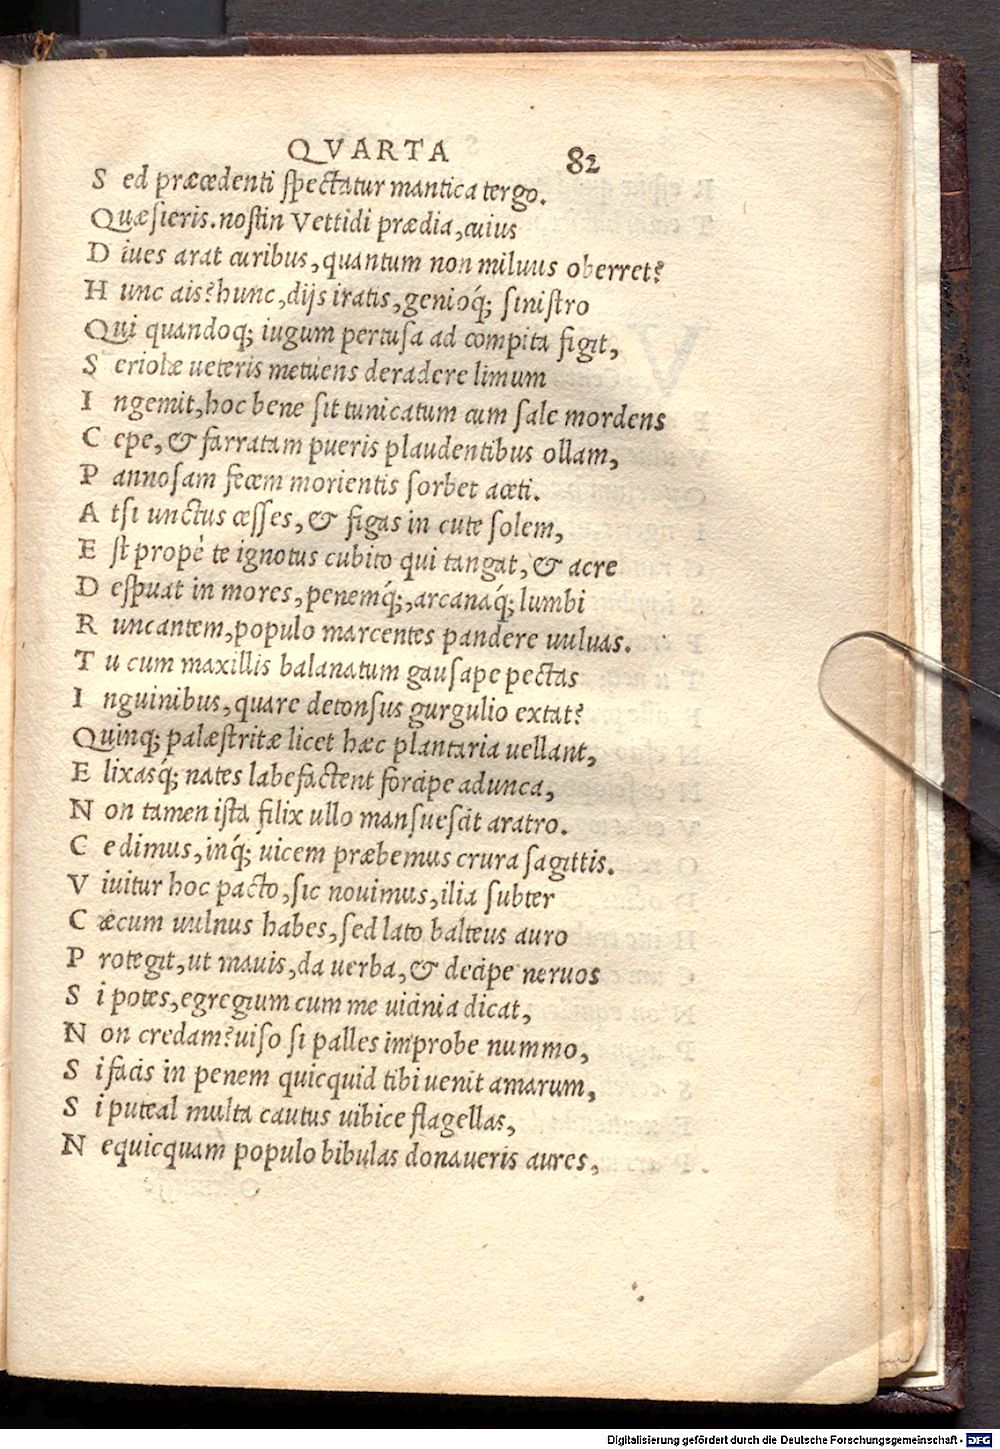 QVARTA 82
Sed præcedenti spectatur mantica tergo.
Quæsieris.nostin Vettidi prædia,cuius
Diues arat curibus,quantum non miluus oberret?
Hunc ais?hunc,dijs iratis,genioq́; sinistro
Qui quandoq; iugum pertusa ad compita figit,
Seriolæ ueteris metuens deradere limum
Ingemit,hoc bene sit tunicatum cum sale mordens
Cepe,& farratam pueris plaudentibus ollam,
Pannosam fecem morientis sorbet aceti.
Atsi unctus cesses,& figas in cute solem,
Est propè te ignotus cubito qui tangat,& acre
Despuat in mores,penemq́;,arcanaq́; lumbi
Runcantem,populo marcentes pandere uuluas.
Tu cum maxillis balanatum gausape pectas
Inguinibus,quare detonsus gurgulio extat?
Quinq; palæstritæ licet hæc plantaria uellant,
Elixasq́; nates labefactent forcipe adunca,
Non tamen ista filix ullo mansuescit aratro.
Cedimus,inq́; uicem præbemus crura sagittis.
Viuitur hoc pacto,sic nouimus,ilia subter
Cæcum uulnus habes,sed lato balteus auro
Protegit,ut mauis,da uerba,& decipe neruos
Si potes,egregium cum me uicinia dicat,
Non credam?uiso si palles improbe nummo,
Si facis in penem quicquid tibi uenit amarum,
Si puteal multa cautus uibice flagellas,
Nequicquam populo bibulas donaueris aures,
Digitalisierung gefördert durch die Deutsche Forschungsgemeinschaft - DFG